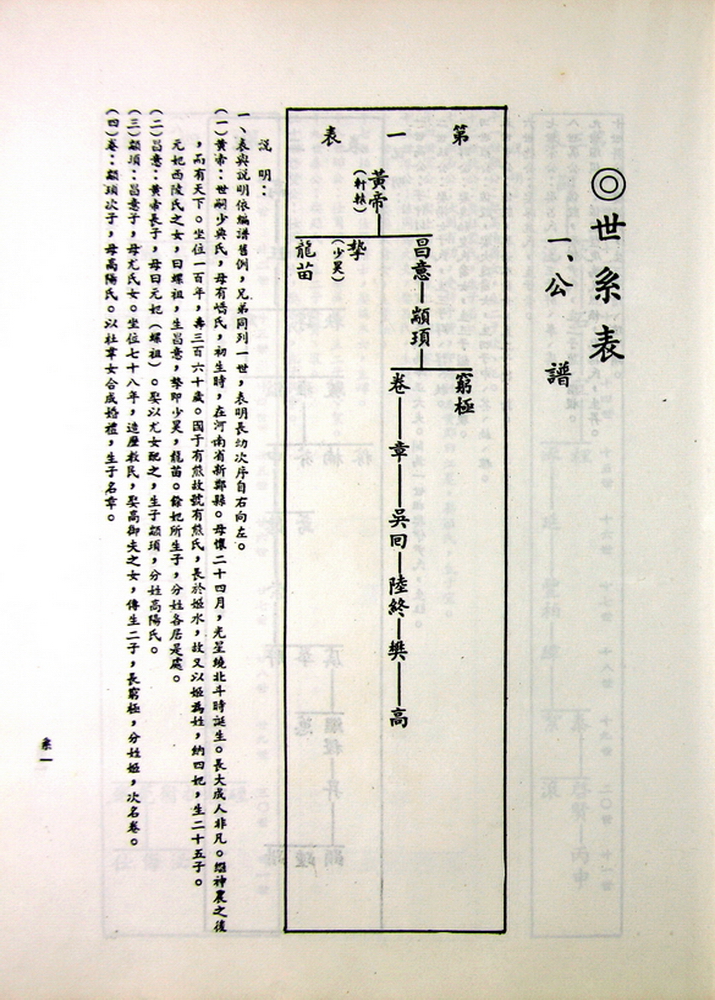 ◎世系表
一、公譜
第一表
黃帝
(軒轅)
昌意—顓頊
摯
(少昊)
龍苗
窮極
卷—章—吳回—陸終—樊—高
說明：
一、表與說明依編譜舊例，兄弟同列一世，表明長幼次序自右向左。
(一)黃帝：世嗣少典氏，母有嶠氏，初生時，在河南省新鄭縣。母懷二十四月，光星繞北斗時誕生。長大成人非凡。繼神農之後
，而有天下。坐位一百年，壽三百六十歲。國于有熊故號有熊氏，長於姬水，故又以姬為姓，納四妃，生二十五子。
元妃西陵氏之女，曰嫘祖，生昌意，摯即少昊，龍苗。餘妃所生子，分姓各居是處。
(二)昌意：黃帝長子，母曰元妃（嫘祖）。娶以尤女配之，生子顓頊，分姓高陽氏。
(三)顓頊：昌意子，母尤氏女。坐位七十八年，造曆教民，娶高御夫之女，傳生二子，長窮極，分姓姬，次名卷。
(四)卷：顓頊次子，母高陽氏。以杜韋女合成婚禮，生子名章。
系一